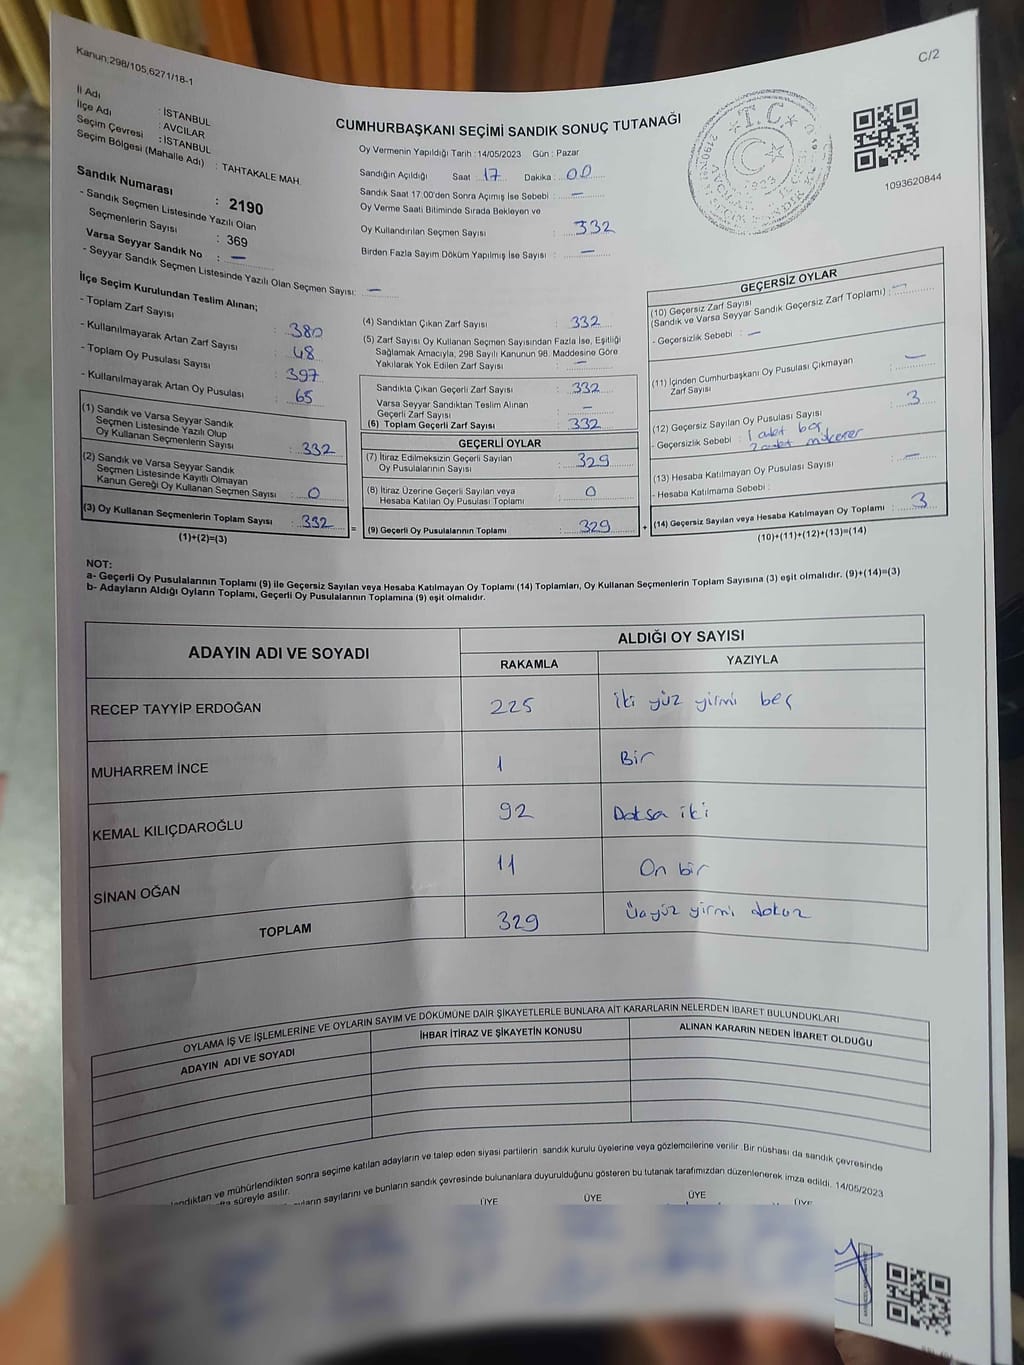 Kanun:298/105,6271/18-1
C/2
İl Adı : İSTANBUL
İlçe Adı : AVCILAR
Seçim Çevresi : İSTANBUL
Seçim Bölgesi (Mahalle Adı) : TAHTAKALE MAH.
CUMHURBAŞKANI SEÇİMİ SANDIK SONUÇ TUTANAĞI
Oy Vermenin Yapıldığı Tarih : 14/05/2023 Gün : Pazar
Sandığın Açıldığı Saat 17 Dakika : 00
Sandık Saat 17.00'den Sonra Açımış İse Sebebi : —
Oy Verme Saati Bitiminde Sırada Bekleyen ve
Oy Kullandırılan Seçmen Sayısı : 332
Birden Fazla Sayım Döküm Yapılmış İse Sayısı : —
T.C.
1093620844
Sandık Numarası : 2190
- Sandık Seçmen Listesinde Yazılı Olan
Seçmenlerin Sayısı : 369
Varsa Seyyar Sandık No : —
- Seyyar Sandık Seçmen Listesinde Yazılı Olan Seçmen Sayısı: —
İlçe Seçim Kurulundan Teslim Alınan;
- Toplam Zarf Sayısı : 380
- Kullanılmayarak Artan Zarf Sayısı : 48
- Toplam Oy Pusulası Sayısı : 397
- Kullanılmayarak Artan Oy Pusulası : 65
(1) Sandık ve Varsa Seyyar Sandık
Seçmen Listesinde Yazılı Olup
Oy Kullanan Seçmenlerin Sayısı : 332
(2) Sandık ve Varsa Seyyar Sandık
Seçmen Listesinde Kayıtlı Olmayan
Kanun Gereği Oy Kullanan Seçmen Sayısı : 0
(3) Oy Kullanan Seçmenlerin Toplam Sayısı : 332 =
(1)+(2)=(3)
(4) Sandıktan Çıkan Zarf Sayısı : 332
(5) Zarf Sayısı Oy Kullanan Seçmen Sayısından Fazla İse, Eşitliği
Sağlamak Amacıyla, 298 Sayılı Kanunun 98. Maddesine Göre
Yakılarak Yok Edilen Zarf Sayısı : —
Sandıkta Çıkan Geçerli Zarf Sayısı : 332
Varsa Seyyar Sandıktan Teslim Alınan
Geçerli Zarf Sayısı : —
(6) Toplam Geçerli Zarf Sayısı : 332
GEÇERLİ OYLAR
(7) İtiraz Edilmeksizin Geçerli Sayılan
Oy Pusulalarının Sayısı : 329
(8) İtiraz Üzerine Geçerli Sayılan veya
Hesaba Katılan Oy Pusulası Toplamı : 0
(9) Geçerli Oy Pusulalarının Toplamı : 329 +
GEÇERSİZ OYLAR
(10) Geçersiz Zarf Sayısı
(Sandık ve Varsa Seyyar Sandık Geçersiz Zarf Toplamı) : —
- Geçersizlik Sebebi : —
(11) İçinden Cumhurbaşkanı Oy Pusulası Çıkmayan
Zarf Sayısı : —
(12) Geçersiz Sayılan Oy Pusulası Sayısı : 3
- Geçersizlik Sebebi : 1 adet boş
2 adet mükerrer
(13) Hesaba Katılmayan Oy Pusulası Sayısı : —
- Hesaba Katılmama Sebebi :
(14) Geçersiz Sayılan veya Hesaba Katılmayan Oy Toplamı : 3
(10)+(11)+(12)+(13)=(14)
NOT:
a- Geçerli Oy Pusulalarının Toplamı (9) ile Geçersiz Sayılan veya Hesaba Katılmayan Oy Toplamı (14) Toplamları, Oy Kullanan Seçmenlerin Toplam Sayısına (3) eşit olmalıdır. (9)+(14)=(3)
b- Adayların Aldığı Oyların Toplamı, Geçerli Oy Pusulalarının Toplamına (9) eşit olmalıdır.
ADAYIN ADI VE SOYADI
ALDIĞI OY SAYISI
RAKAMLA YAZIYLA
RECEP TAYYİP ERDOĞAN 225 iki yüz yirmi beş
MUHARREM İNCE 1 Bir
KEMAL KILIÇDAROĞLU 92 Doksa iki
SİNAN OĞAN 11 On bir
TOPLAM 329 Üçyüz yirmi dokuz
OYLAMA İŞ VE İŞLEMLERİNE VE OYLARIN SAYIM VE DÖKÜMÜNE DAİR ŞİKAYETLERLE BUNLARA AİT KARARLARIN NELERDEN İBARET BULUNDUKLARI
ADAYIN ADI VE SOYADI
İHBAR İTİRAZ VE ŞİKAYETİN KONUSU
ALINAN KARARIN NEDEN İBARET OLDUĞU
mühürlendikten sonra seçime katılan adayların ve talep eden siyasi partilerin sandık kurulu üyelerine veya gözlemcilerine verilir. Bir nüshası da sandık çevresinde
süreyle asılır.
sayılarını ve bunların sandık çevresinde bulunanlara duyurulduğunu gösteren bu tutanak tarafımızdan düzenlenerek imza edildi. 14/05/2023
ÜYE ÜYE ÜYE ÜYE